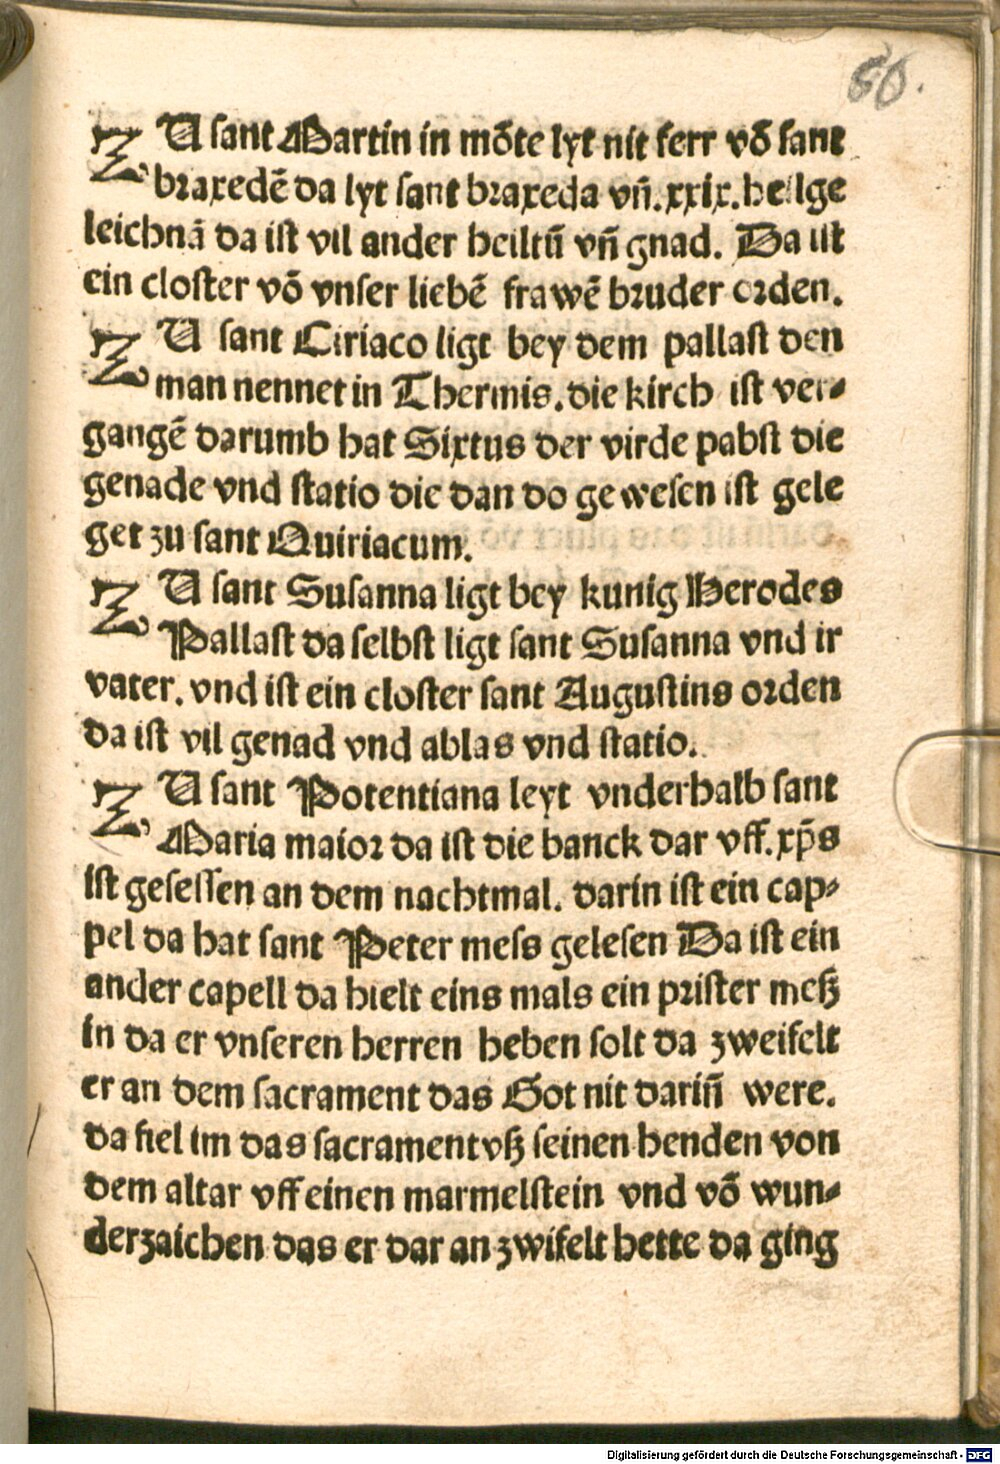 60.
ZU sant Martin in mōte lyt nit ferr vō sant
braxedē da lyt sant braxeda vn̄. xxix. heilge
leichnā da ist vil ander heiltū vn̄ gnad. Da ist
ein closter vō vnser liebē frawē bruder orden.
ZU sant Ciriaco ligt bey dem pallast den
man nennet in Thermis. die kirch ist ver-
gangē darumb hat Sixtus der virde pabst die
genade vnd statio die dan do gewesen ist gele
get zu sant Quiriacum.
ZU sant Susanna ligt bey kunig Herodes
Pallast da selbst ligt sant Susanna vnd ir
vater. vnd ist ein closter sant Augustins orden
da ist vil genad vnd ablas vnd statio.
ZU sant Potentiana leyt vnderhalb sant
Maria maior da ist die banck dar vff. xp̄s
ist gesessen an dem nachtmal. darin ist ein cap-
pel da hat sant Peter mess gelesen Da ist ein
ander capell da hielt eins mals ein prister meß
in da er vnseren herren heben solt da zweifelt
er an dem sacrament das Got nit darin̄ were.
da fiel im das sacrament vß seinen henden von
dem altar vff einen marmelstein vnd vō wun-
derzaichen das er dar an zwifelt hette da ging
Digitalisierung gefördert durch die Deutsche Forschungsgemeinschaft - DFG